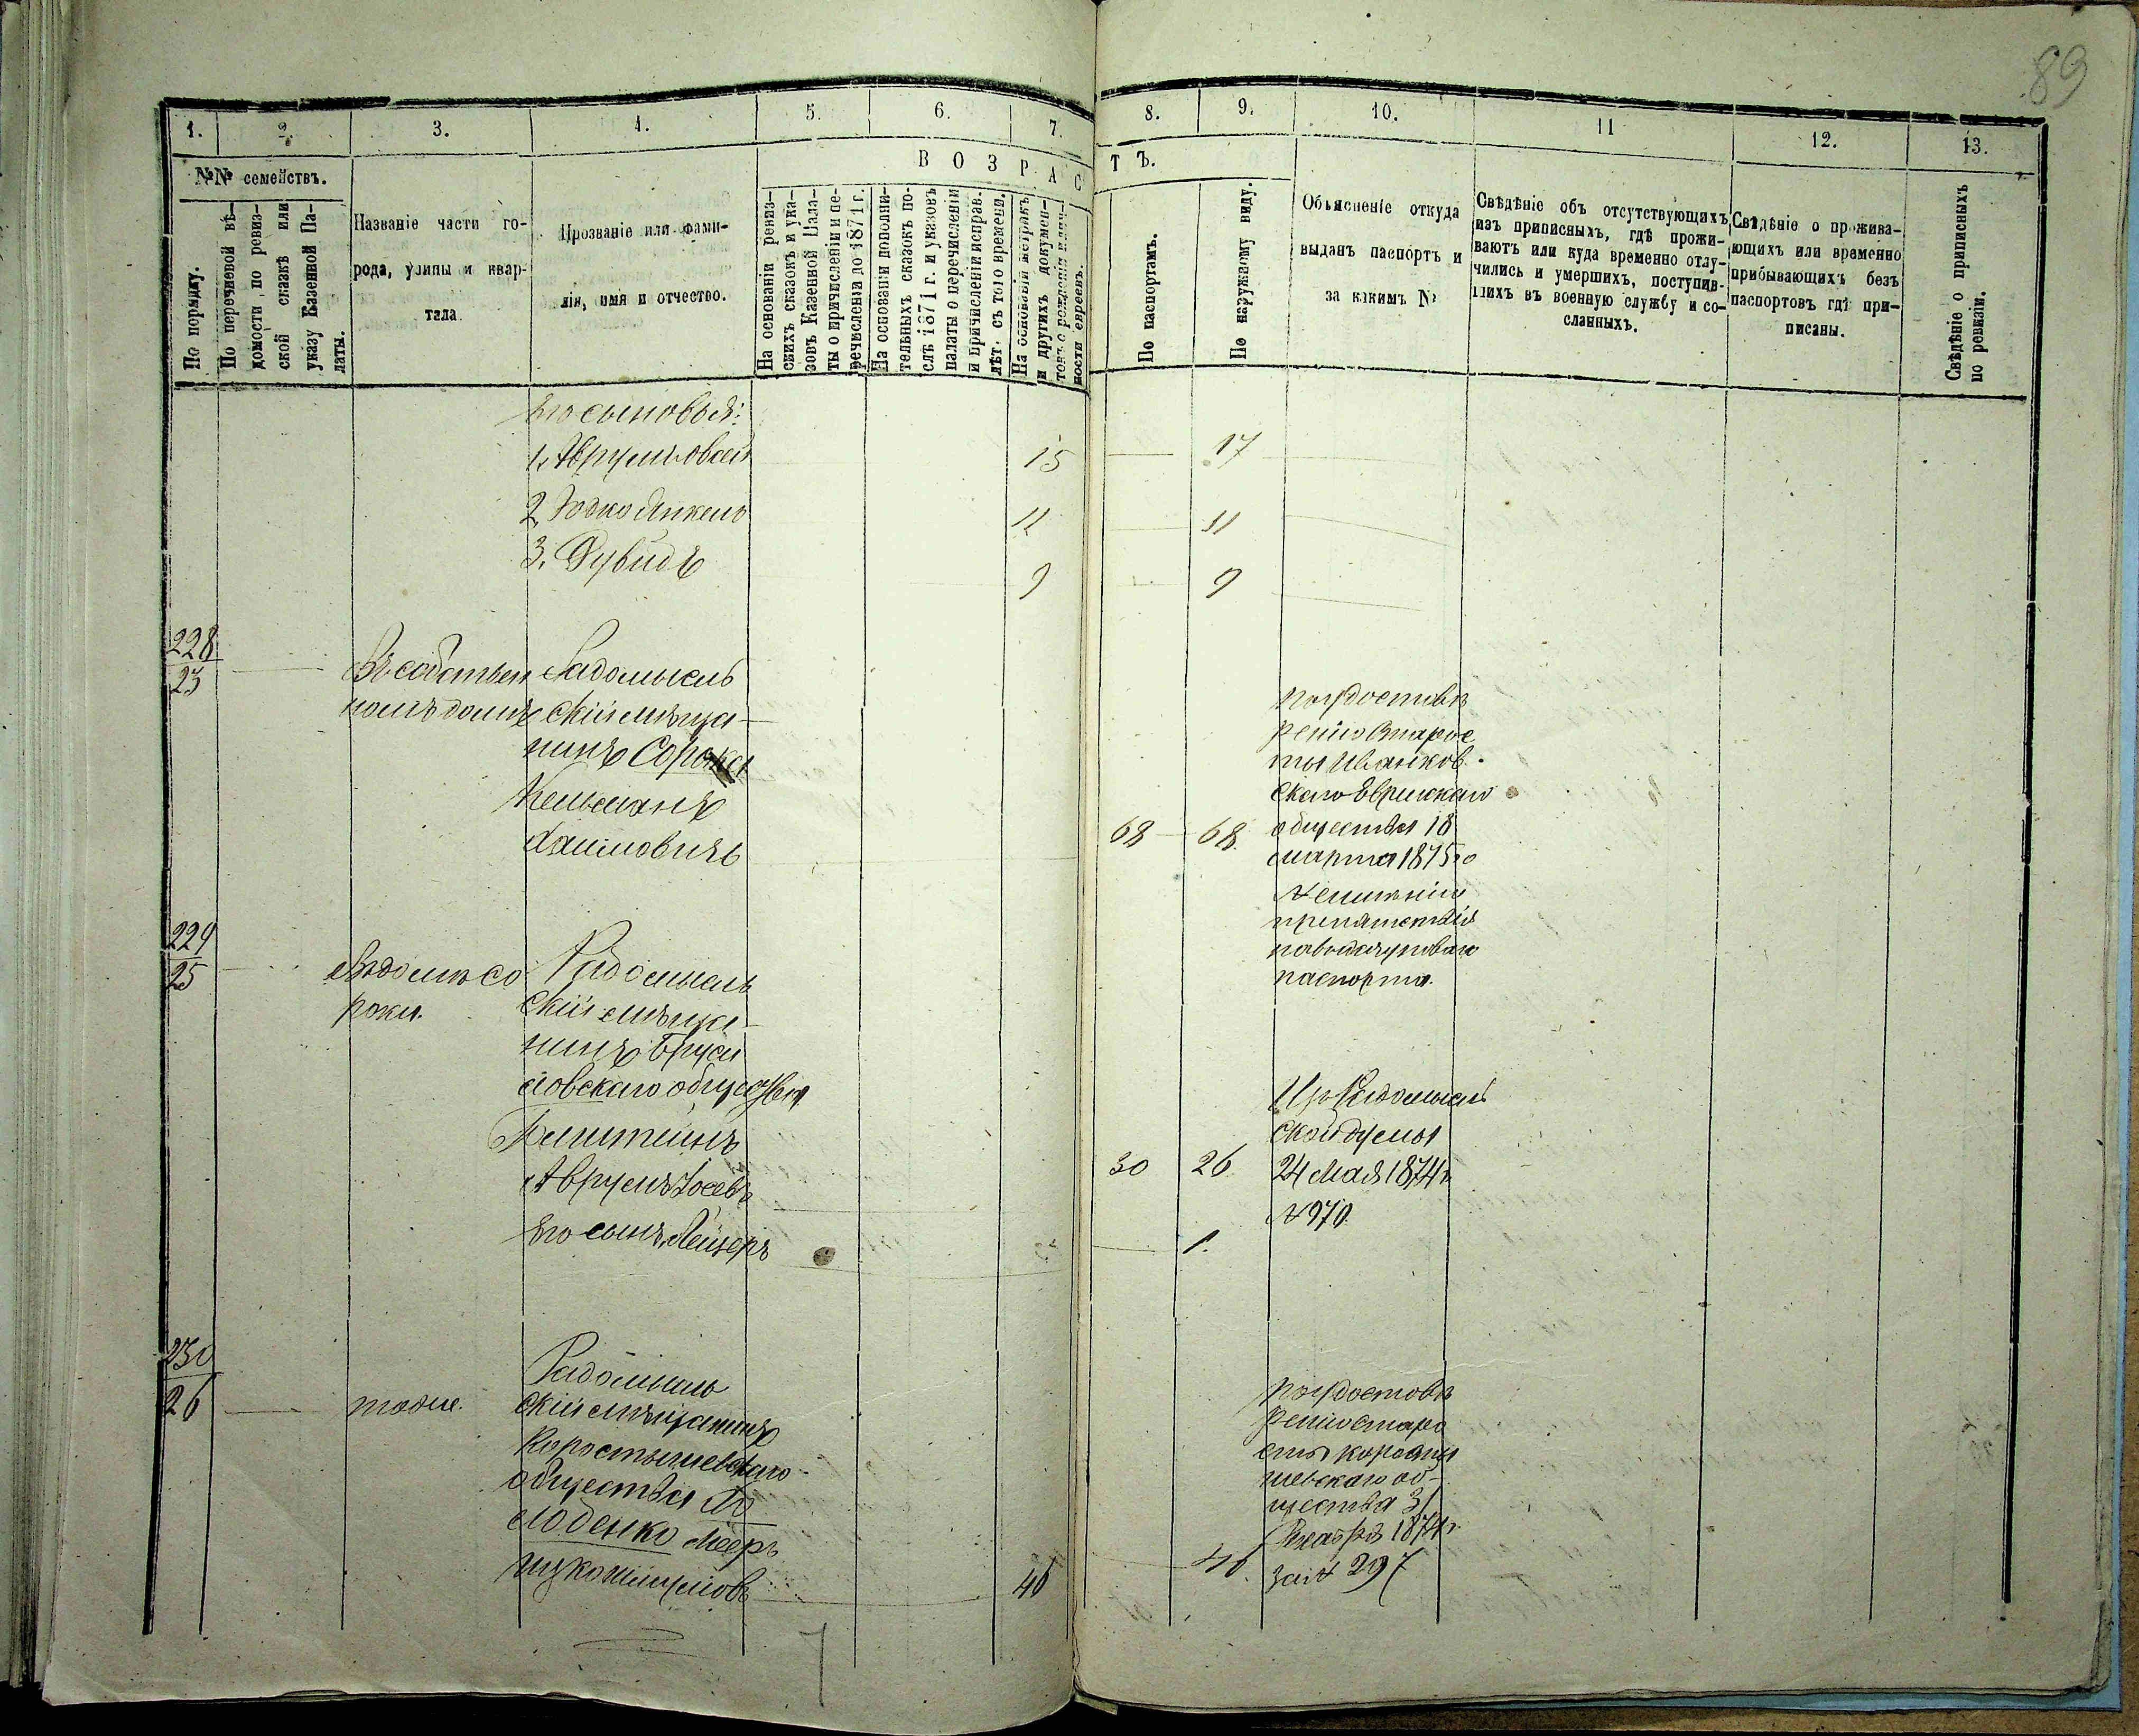 89
1. 2. 3. 4. 5. 6. 7. 8. 9. 10. 11 12. 13.
№№ семействъ.
В О З Р А С Т Ъ.
По порядку.
По перечневой вѣ-
домости, по ревиз-
ской сказкѣ или
указу Казенной Па-
латы.
Названіе части го-
рода, улицы и квар-
тала
Прозваніе или фами-
лія, имя и отчество.
На основаніи ревиз-
скихъ сказокъ и ука-
зовъ Казенной Пала-
ты о причисленіи и пе-
речисленіи до 1871 г.
На основаніи дополни-
тельныхъ сказокъ по-
слѣ 1871 г. и указовъ
палаты о перечисленіи
и причисленіи исправ.
лѣт. съ того времени.
На основаніи метрикъ
и другихъ докумен-
товъ о рожденіи
ности евреевъ.
По паспортамъ.
По наружному виду.
Объясненіе откуда
выданъ паспортъ и
за какимъ №
Свѣдѣніе объ отсутствующихъ
изъ приписныхъ, гдѣ прожи-
ваютъ или куда временно отлу-
чились и умершихъ, поступив-
шихъ въ военную службу и со-
сланныхъ.
Свѣдѣніе о прожива-
ющихъ или временно
прибывающихъ безъ
паспортовъ гдѣ при-
писаны.
Свѣдѣніе о приписныхъ
по ревизіи.
Его сыновья:
1, Аврумъ Овсей 15 17
2, Юдко Янкель 11 11
3, Дувидъ 9 9
228
23
Въ собствен
номъ домѣ
Радомысль
скій мѣща-
нинъ Сорока
Кельманъ
Хаимовичъ
68 68
По удостовѣ
ренію Старос
ты Иванков-
скаго Еврейскаго
общества 18
марта 1875 о
неимѣніи
препятствія
на выдачу новаго
паспорта.
229
25
Въ домѣ Со
роки.
Радомысль
скій мѣща-
нинъ Бруси
ловскаго общества
Аврумъ Іосевъ
30 26
Его сынъ Лейзеръ
1.
Изъ Радомысль
ской думы
24 Мая 1874 г.
№ 970
230
26
тоже.
Радомысль
скій мѣщанинъ
Коростышевскаго
общества
лоденко Мееръ
40 40
По удостовѣ
ренію старо
сты Коросты
шевскаго об-
щества 31
Декабря 1874 г.
за № 297
7